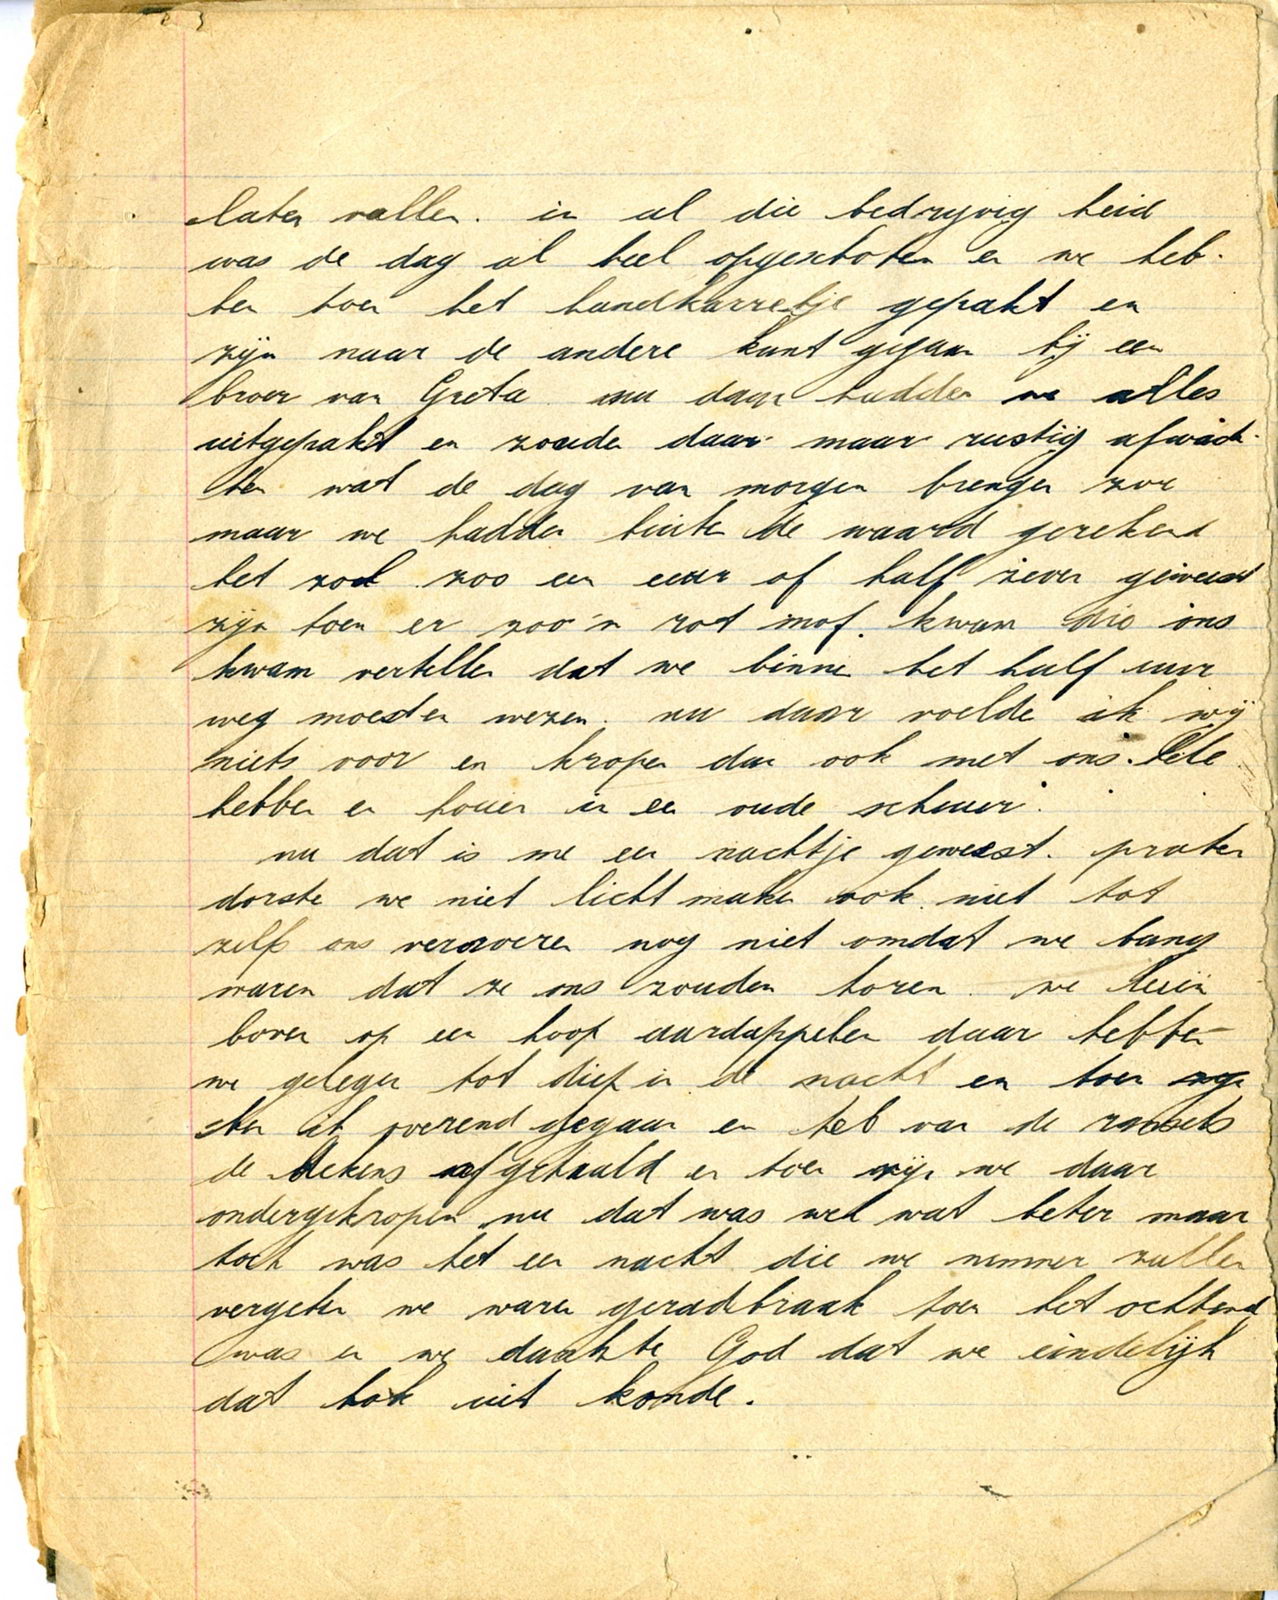 laten vallen. in al die bedryvig heid
was de dag al heel opgeschoten en we heb-
ben toen het handkarretje gepakt en
zijn naar de andere kant gegaan bij een
broer van Greta nu daar hadden we alles
uitgepakt en zouden daar maar rustig afwach-
ten wat de dag van morgen brengen zou
maar we hadden buiten de waard gerekend
het zal zoo een uur of half zeven geweest
zijn toen er zoo'n rot mof. kwam die ons
kwam vertellen dat we binnen het half uur
weg moesten wezen. nu daar voelde ik wij
niets voor en kropen dan ook met ons hele
hebben en houen in een oude schuur.
nu dat is me een nachtje geweest. praten
dorste we niet licht maken ook niet tot
zelfs ons verroeren nog niet omdat we bang
waren dat ze ons zouden horen. we
boven op een hoop aardappelen daar hebben
we gelegen tot diep in de nacht en toen
ben ik overend gegaan en heb van de
de dekens afgehaald en toen zijn we daar
ondergekropen nu dat was wel wat beter maar
toch was het een nacht die we nimmer zullen
vergeten we waren geradbraak toen het ochtend
was en we dankte God dat we eindelijk
dat hok uit konde.